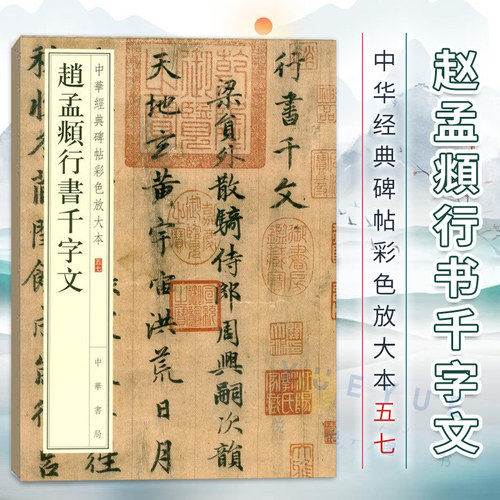 赵孟頫行书千字文
中华经典碑帖彩色放大本五七
行書千文
梁員外散騎侍郎周興嗣次韻
天地玄黃宇宙洪荒日月
暑往
秋收冬藏閏餘成歲律呂
中華經典碑帖彩色放大本 五七
趙孟頫行書千字文
中華書局